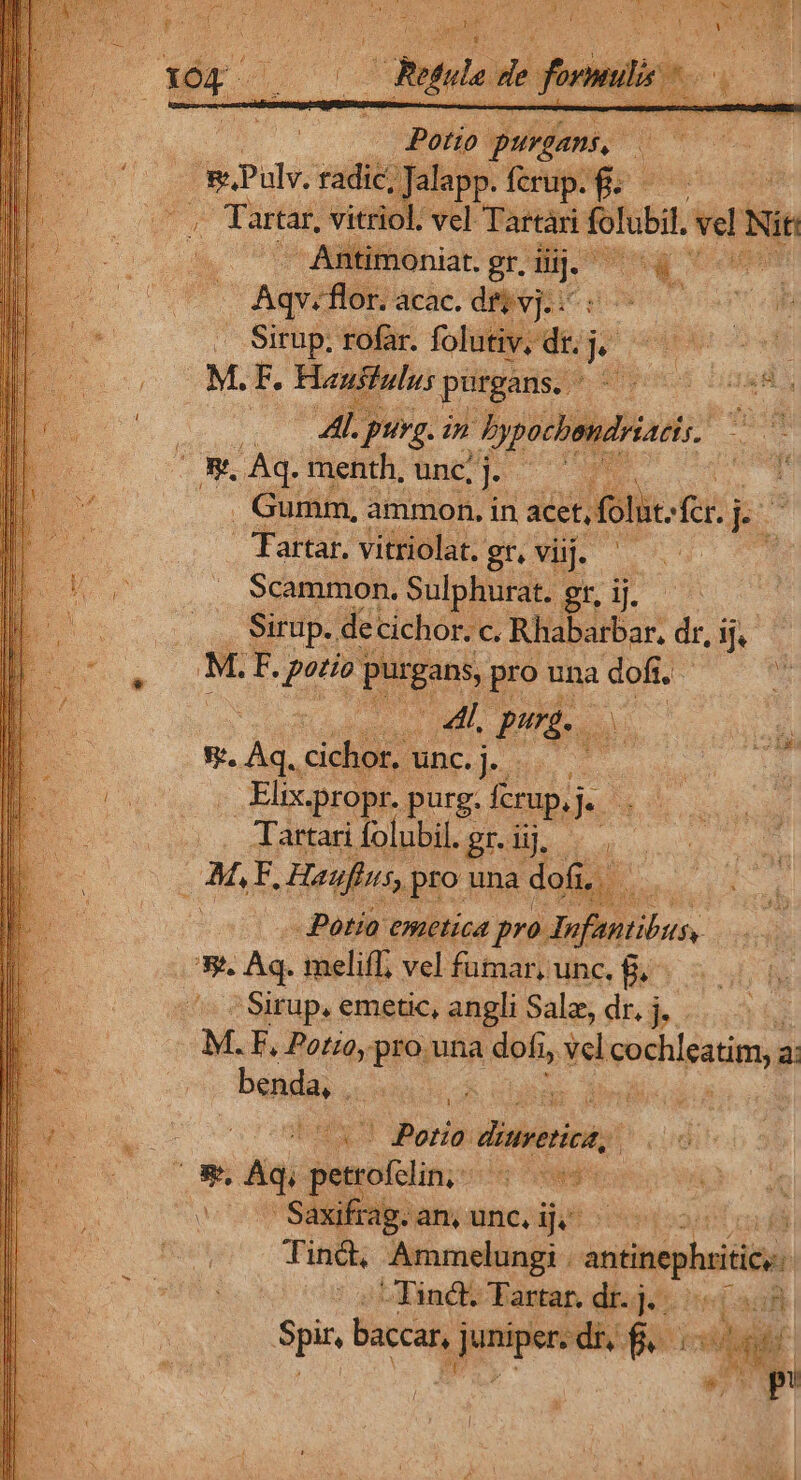 104 Regula de formulis
Potio purgans,
℞. Pulv. radic, Jalapp. ſcrup. ß.
Tartar, vitriol. vel Tartari ſolubil. vel Nit
Antimoniat. gr. iiij.
Aqv. flor. acac. dr, vj.
Sirup. roſar. ſolutiv, dr. j.
M. F. Hauſtulus purgans.
Al. purg. in hypochondriacis.
℞. Aq. menth, unc, j.
Gumm, ammon, in acet, ſolut. ſcr. j.
Tartar. vitriolat. gr, viij.
Scammon. Sulphurat. gr, ij.
Sirup. de cichor. c. Rhabarbar. dr, ij,
M. F. potio purgans, pro una doſi.
Al, purg.
℞. Aq. cichor. unc. j.
Elix. propr. purg. ſcrup. j.
Tartari ſolubil. gr. iij.
M, F, Hauſtus, pro una doſi.
Potio emetica pro Infantibus,
℞. Aq. meliſſ, vel fumar, unc. ß,
Sirup. emetic, angli Salæ, dr, j.
M. F, Potio, pro una doſi, vel cochleatim, a
benda,
Potio diuretica,
℞. Aq, petroſelin,
Saxifrag. an, unc, ij,
Tinct, Ammelungi antinephritic,
Tinct. Tartar. dr. j.
Spir, baccar, juniper. dr, ß,